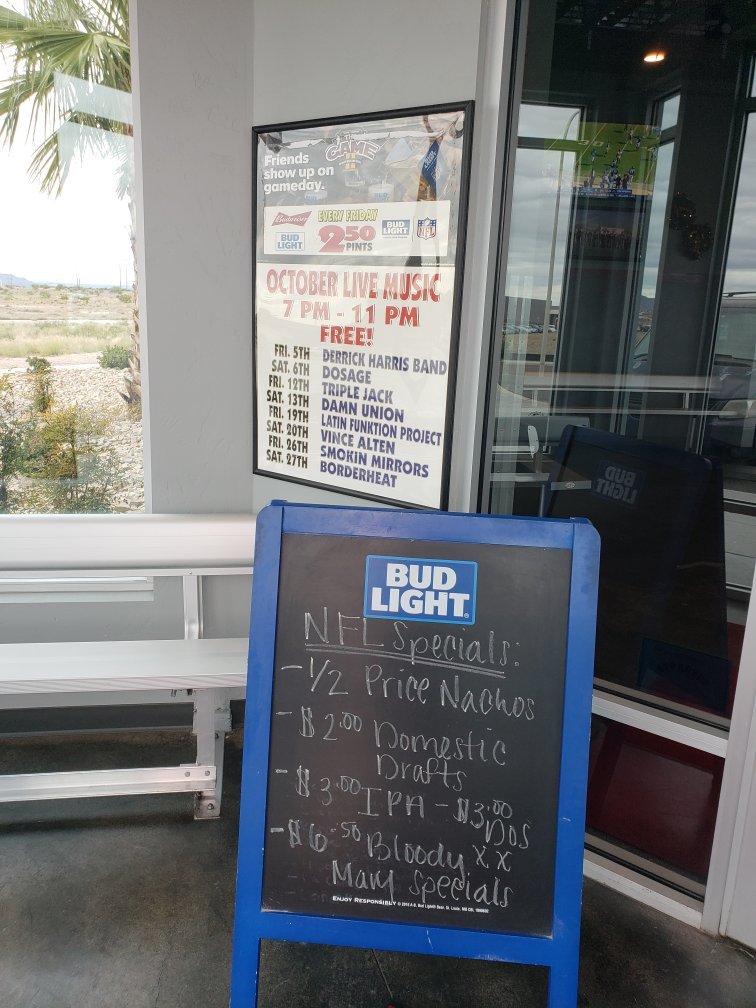 THE
GAME
Friends
show up on
gameday.
Budweiser
BUD
LIGHT
EVERY FRIDAY
2.50
PINTS
BUD
LIGHT
NFL
OCTOBER LIVE MUSIC
7 PM - 11 PM
FREE!
FRI. 5TH DERRICK HARRIS BAND
SAT. 6TH DOSAGE
FRI. 12TH TRIPLE JACK
SAT. 13TH DAMN UNION
FRI. 19TH LATIN FUNKTION PROJECT
SAT. 20TH VINCE ALTEN
FRI. 26TH SMOKIN MIRRORS
SAT. 27TH BORDERHEAT
BUD LIGHT
BUD
LIGHT
NFL Specials:
- 1/2 Price Nachos
- $2.00 Domestic
Drafts
- $3.00 IPA - $3.00
DOS
- $6.50 Bloody XX
Mary Specials
ENJOY RESPONSIBLY